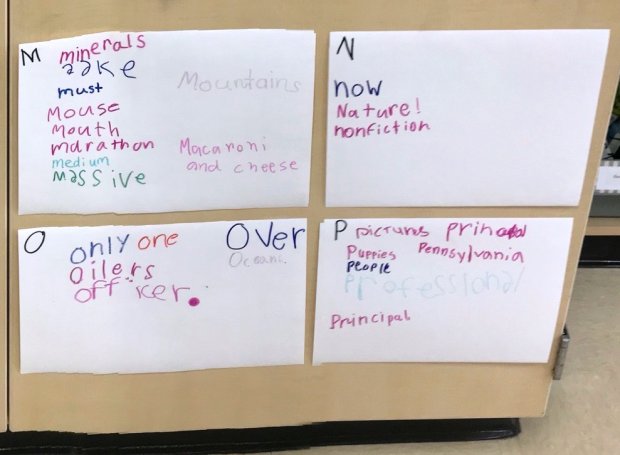 M
minerals
make
must
Mouse
Mouth
marathon
medium
massive
Mountains
Macaroni
and cheese
N
now
Nature!
nonfiction
O
only one
Oilers
officer.
Over
Ocean
P pictures
Puppies Pennsylvania
People
Professional
Principal